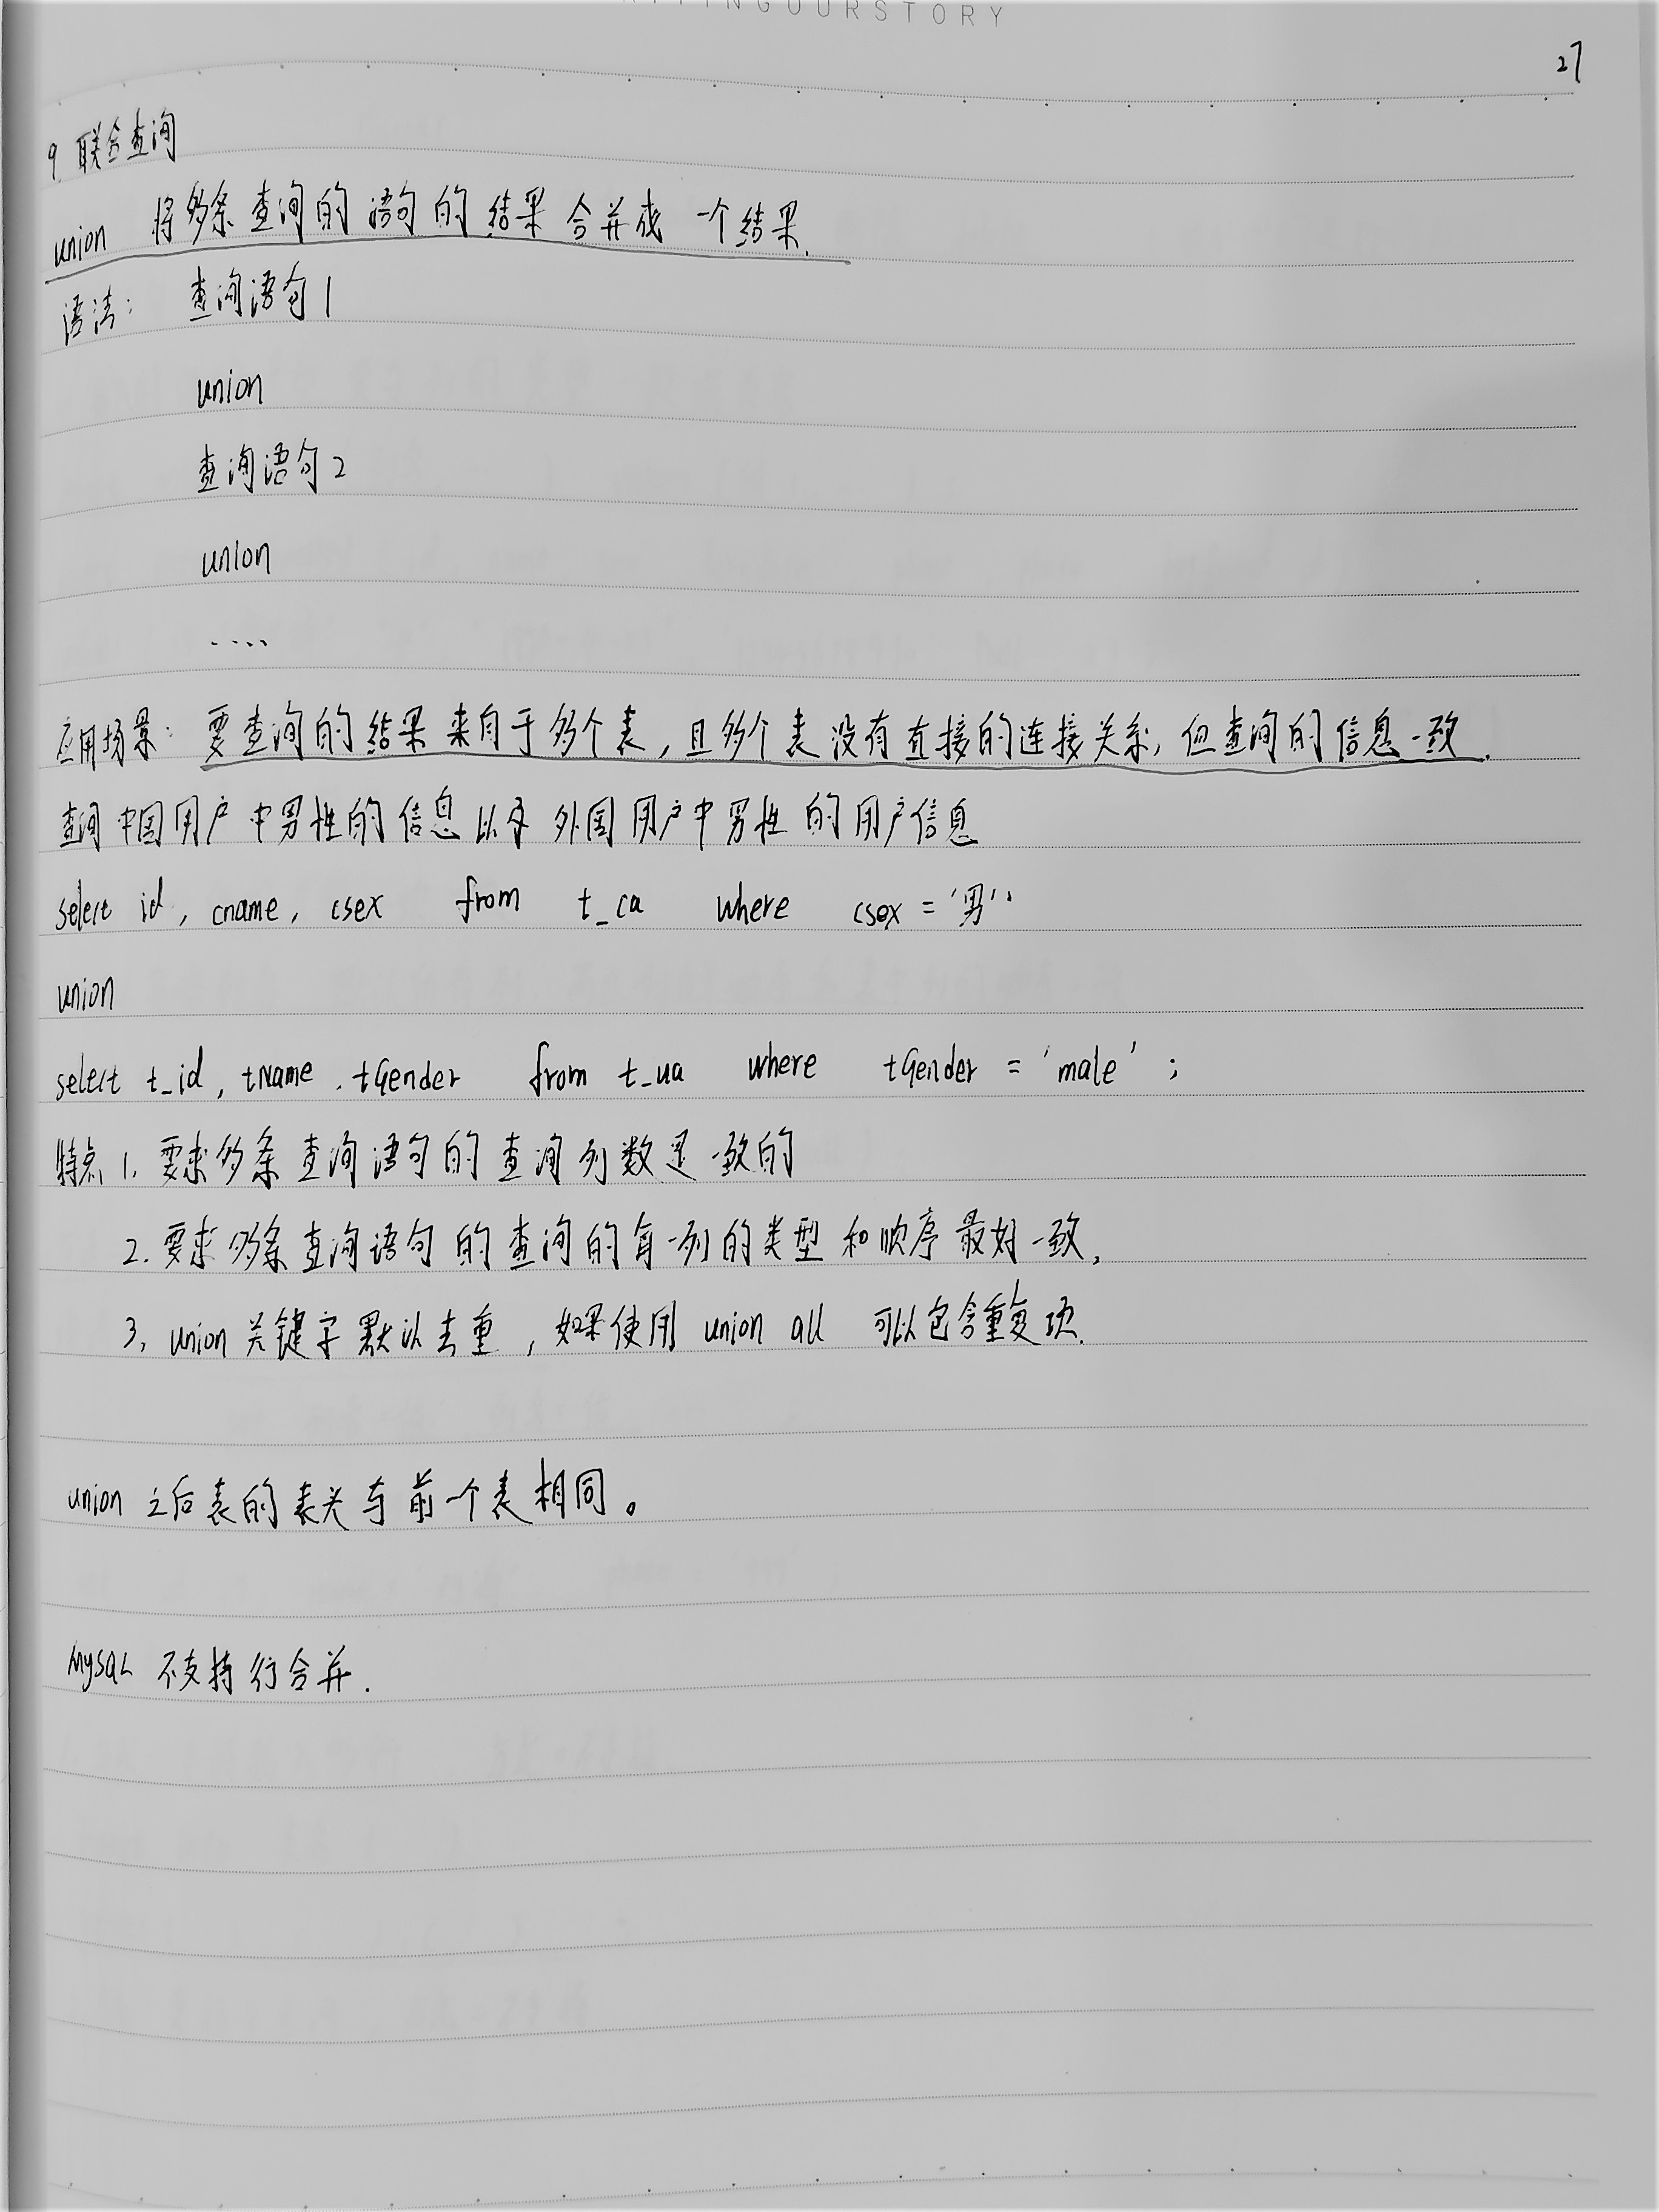 ITINGOURSTORY
27
9 联合查询
union 将多条查询的语句的结果合并成一个结果.
语法: 查询语句1
union
查询语句2
union
....
应用场景: 要查询的结果来自于多个表,且多个表没有直接的连接关系,但查询的信息一致.
查询中国用户中男性的信息以及外国用户中男性的用户信息
select id, cname, csex from t_ca where csex = '男'
union
select t_id, tName, tGender from t_ua where tGender = 'male' ;
特点 1. 要求多条查询语句的查询列数是一致的
2. 要求多条查询语句的查询的每一列的类型和顺序最好一致.
3. union关键字默认去重,如果使用 union all 可以包含重复项.
union 之后表的表头与前一个表相同。
MySQL 不支持行合并.